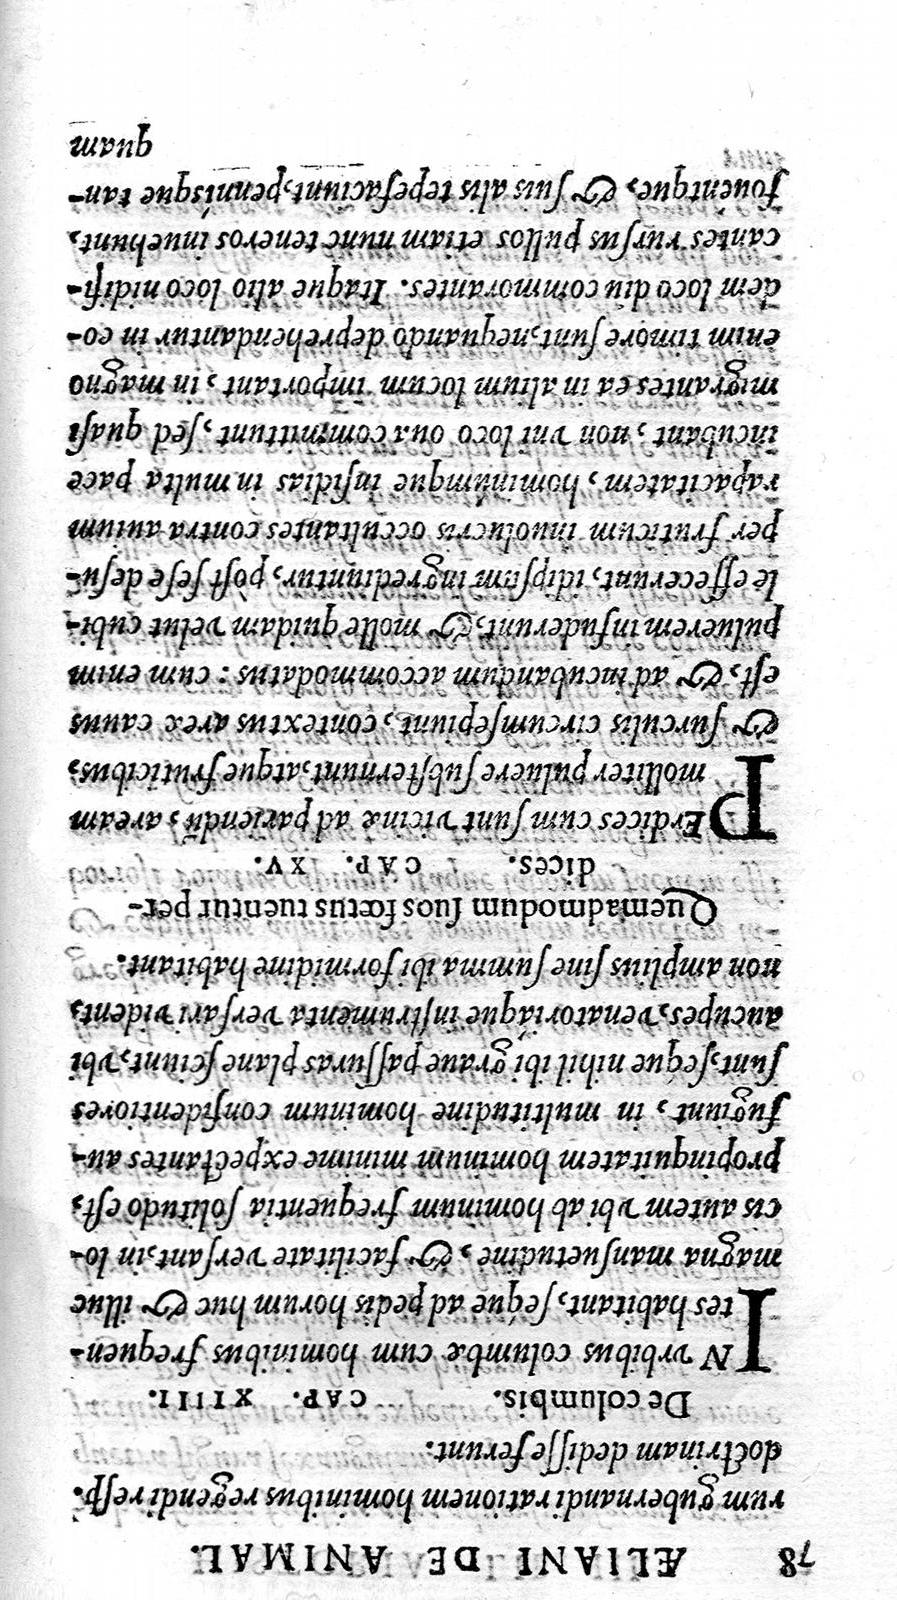 78 ÆLIANI DE ANIMAL.
rum gubernandi rationem hominibus regendi resp.
doctrinam dedisse ferunt.
De columbis. CAP. XIIII.
IN vrbibus columbæ cum hominibus frequen-
tes habitant, seque ad pedes horum huc & illuc
magna mansuetudine, & facilitate versant, in lo-
cis autem vbi ab hominum frequentia solitudo est,
propinquitatem hominum minime expectantes au-
fugiunt, in multitudine hominum confidentiores
sunt, seque nihil ibi graue passuras plane sciunt, vbi
aucupes, venatoriaque instrumenta versari vident,
non amplius sine summa ibi formidine habitant.
Quemadmodum suos fœtus tuentur per-
dices. CAP. XV.
PErdices cum sunt vicinæ ad pariendũ, aream
molliter puluere substernunt, atque fruticibus,
& surculis circumsepiunt, contextus areæ cauus
est, & ad incubandum accommodatus: cum enim
puluerem infuderunt, & molle quidam velut cubi-
le effecerunt, id ipsum ingrediuntur, póst sese desu-
per fruticum inuolucris occultantes contra auium
rapacitatem, hominúmque insidias in multa pace
incubant, non vni loco oua committunt, sed quasi
migrantes ea in alium locum important, in magno
enim timore sunt, nequando deprehendantur in eo-
dem loco diu commorantes. Itaque alio loco nidifi-
cantes rursus pullos etiam nunc teneros inuehunt,
fouéntque, & suis alis tepefaciunt, pennísque tan-
quam